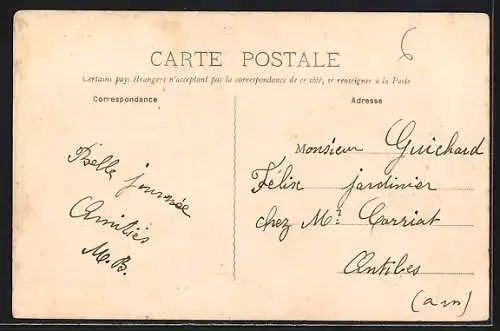 6
CARTE POSTALE
Certains pays étrangers n'acceptant pas la correspondance de ce côté, se renseigner à la Poste
Correspondance
Adresse
Belle journée
Amitiés
M. B.
Monsieur Guichard
Félix jardinier
chez Mr Carriat
Antibes
(a m)